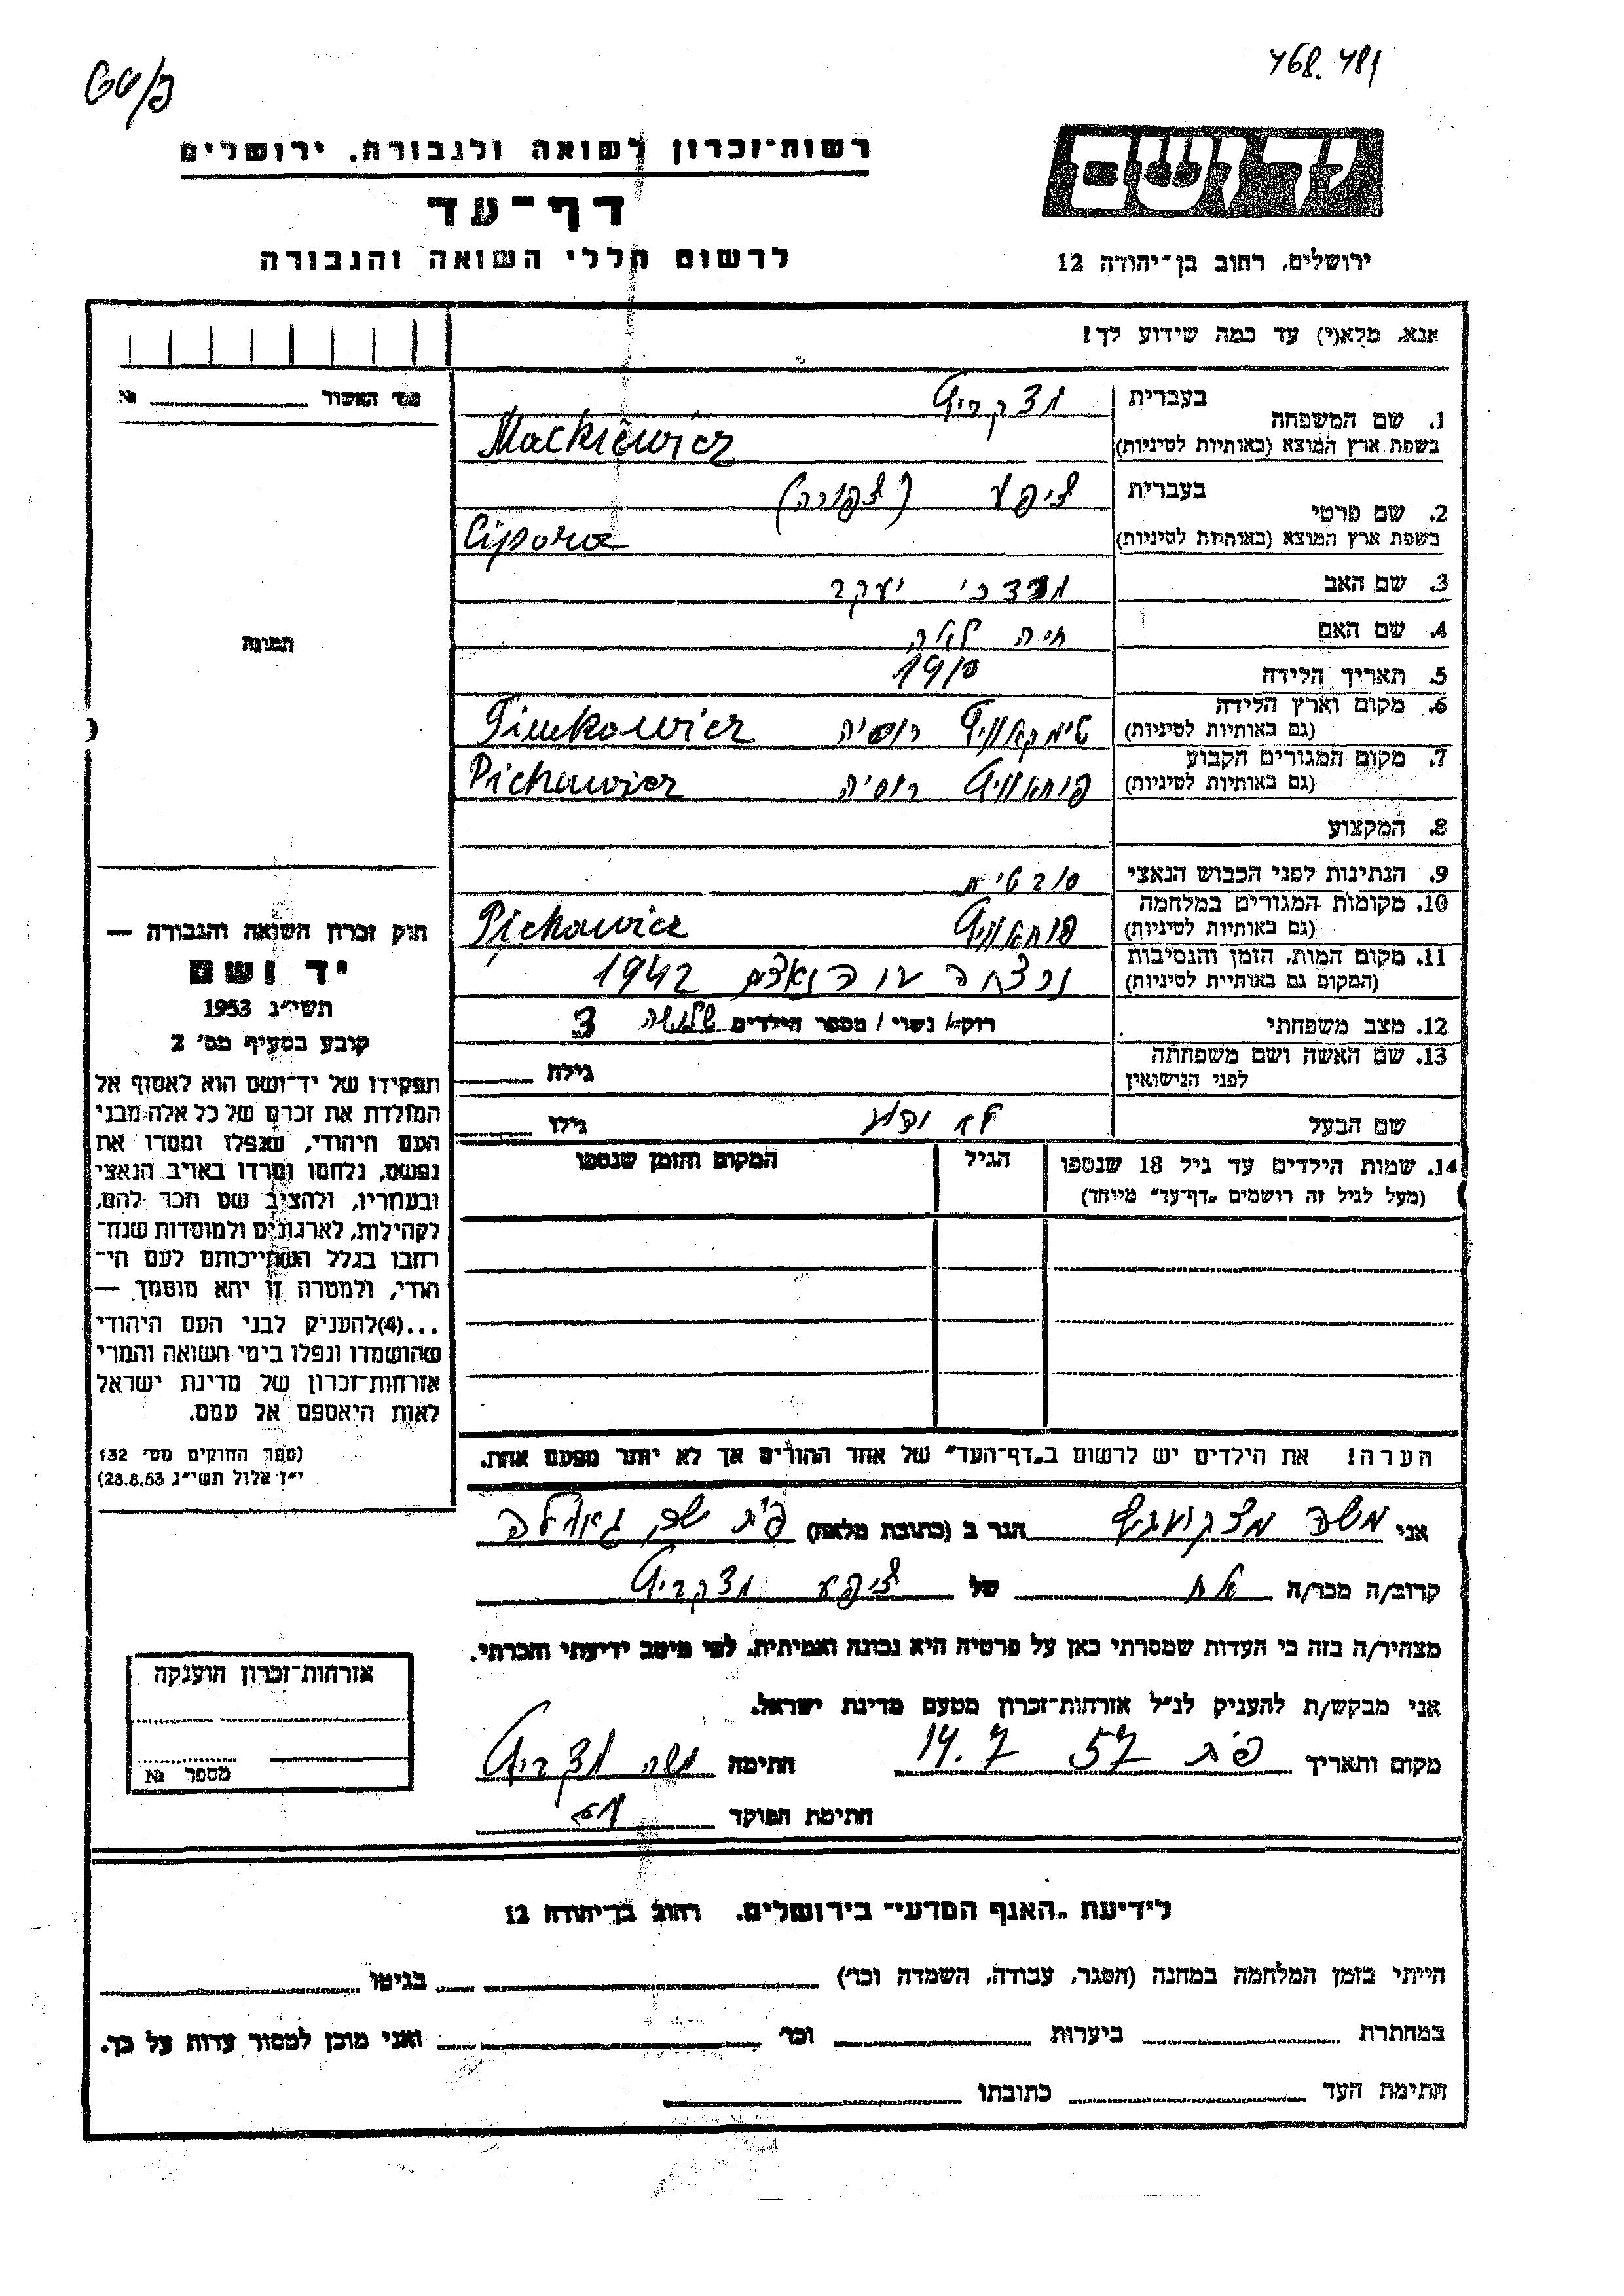 768.481
רשות־זכרון לשואה ולגבורה, ירושלים
דף־עד
לרשום חללי השואה והגבורה
יד ושם
ירושלים, רחוב בן־יהודה 12
אנא, מלא(י) עד כמה שידוע לך!
1. שם המשפחה
בעברית
בשפת ארץ המוצא (באותיות לטיניות) Mackiewicz
2. שם פרטי
בעברית ציפע (צפורה)
בשפת ארץ המוצא (באותיות לטיניות) Cipora
3. שם האב מרדכי יעקב
4. שם האם חיה לאה
5. תאריך הלידה 1910
6. מקום וארץ הלידה (גם באותיות לטיניות) טימקאוויץ רוסיה Timkowicz
7. מקום המגורים הקבוע (גם באותיות לטיניות) פוחאוויץ רוסיה Pichowicz
8. המקצוע
9. הנתינות לפני הכבוש הנאצי
10. מקומות המגורים במלחמה (גם באותיות לטיניות) פוחאוויץ Pichowicz
11. מקום המות, הזמן והנסיבות (המקום גם באותיות לטיניות) נרצחה הנאצים 1942
12. מצב משפחתי רוק/ נשוי / מספר הילדים שלושה 3
13. שם האשה ושם משפחתה לפני הנישואין גילה
שם הבעל גילו
14. שמות הילדים עד גיל 18 שנספו הגיל המקום והזמן שנספו
(מעל לגיל זה רושמים „דף־עד" מיוחד)
הערה! את הילדים יש לרשום ב„דף־העד" של אחד ההורים אך לא יותר מפעם אחת.
מס׳ האשור №
תמונה
חוק זכרון השואה והגבורה —
יד ושם
תשי״ג 1953
קובע בסעיף מס׳ 2
תפקידו של יד־ושם הוא לאסוף אל
המולדת את זכרם של כל אלה מבני
העם היהודי, שנפלו ומסרו את
נפשם, נלחמו ומרדו באויב הנאצי
ובעוזריו, ולהציב שם וזכר להם,
לקהילות, לארגונים ולמוסדות שנח־
רבו בגלל השתייכותם לעם הי־
הודי, ולמטרה זו יהא מוסמך —
...(4)להעניק לבני העם היהודי
שהושמדו ונפלו בימי השואה והמרי
אזרחות־זכרון של מדינת ישראל
לאות היאספם אל עמם.
(ספר החוקים מס׳ 132
י״ז אלול תשי״ג 28.8.53)
אני משה מצקעוויץ הגר ב (כתובת מלאה) פ״ת
קרוב/ה מכר/ה אח של ציפע
מצהיר/ה בזה כי העדות שמסרתי כאן על פרטיה היא נכונה ואמיתית, לפי מיטב ידיעתי והכרתי.
אני מבקש/ת להעניק לנ״ל אזרחות־זכרון מטעם מדינת ישראל.
מקום ותאריך פ״ת 14.7 57 חתימה משה
חתימת הפוקד
אזרחות־זכרון הוענקה
מספר №
לידיעת „האגף המדעי" בירושלים. רחוב בן־יהודה 12
הייתי בזמן המלחמה במחנה (הסגר, עבודה, השמדה וכו׳) בגיטו
במחתרת ביערות וכו׳ ואני מוכן למסור עדות על כך.
חתימת העד כתובתו